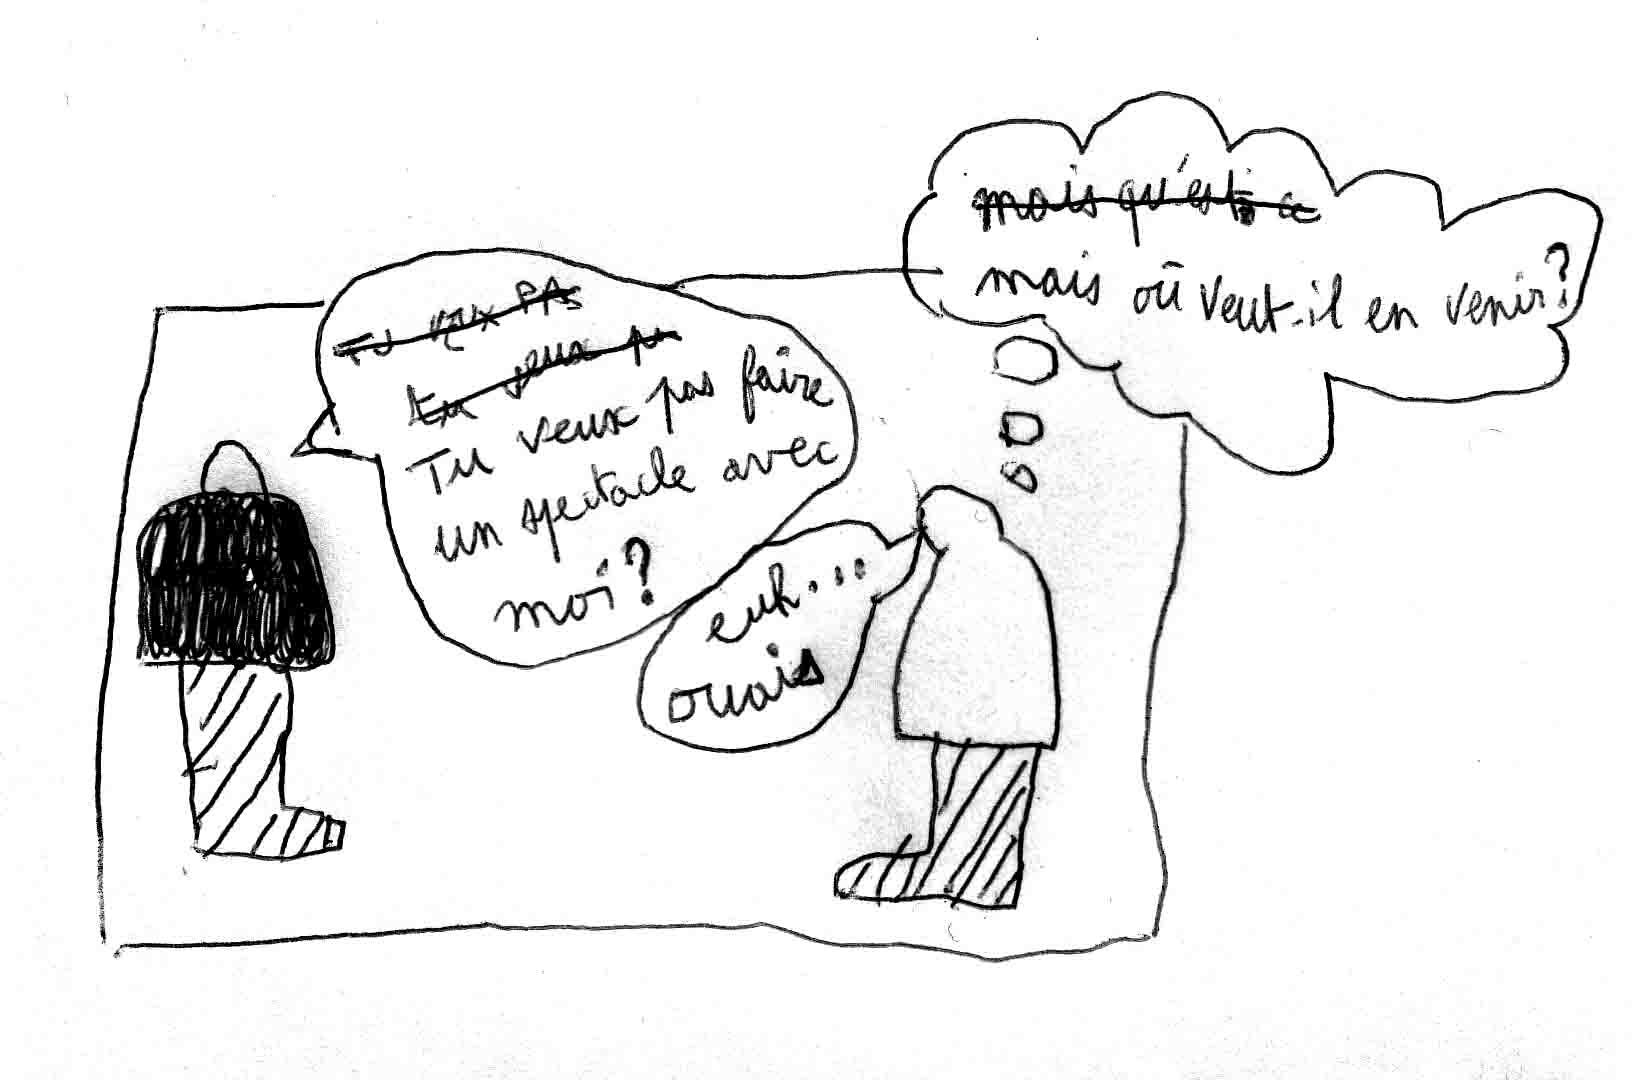 TU VEUX PAS
tu veux pa
Tu veux pas faire
un spectacle avec
moi?
euh...
ouais
mais qu'est ce
mais où veut-il en venir?